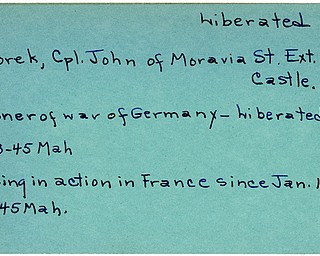 Liberated
orek, Cpl. John of Moravia St. Ext.
Castle.
ner of war of Germany - Liberated
-45 Mah
ing in action in France since Jan. 1
45 Mah.